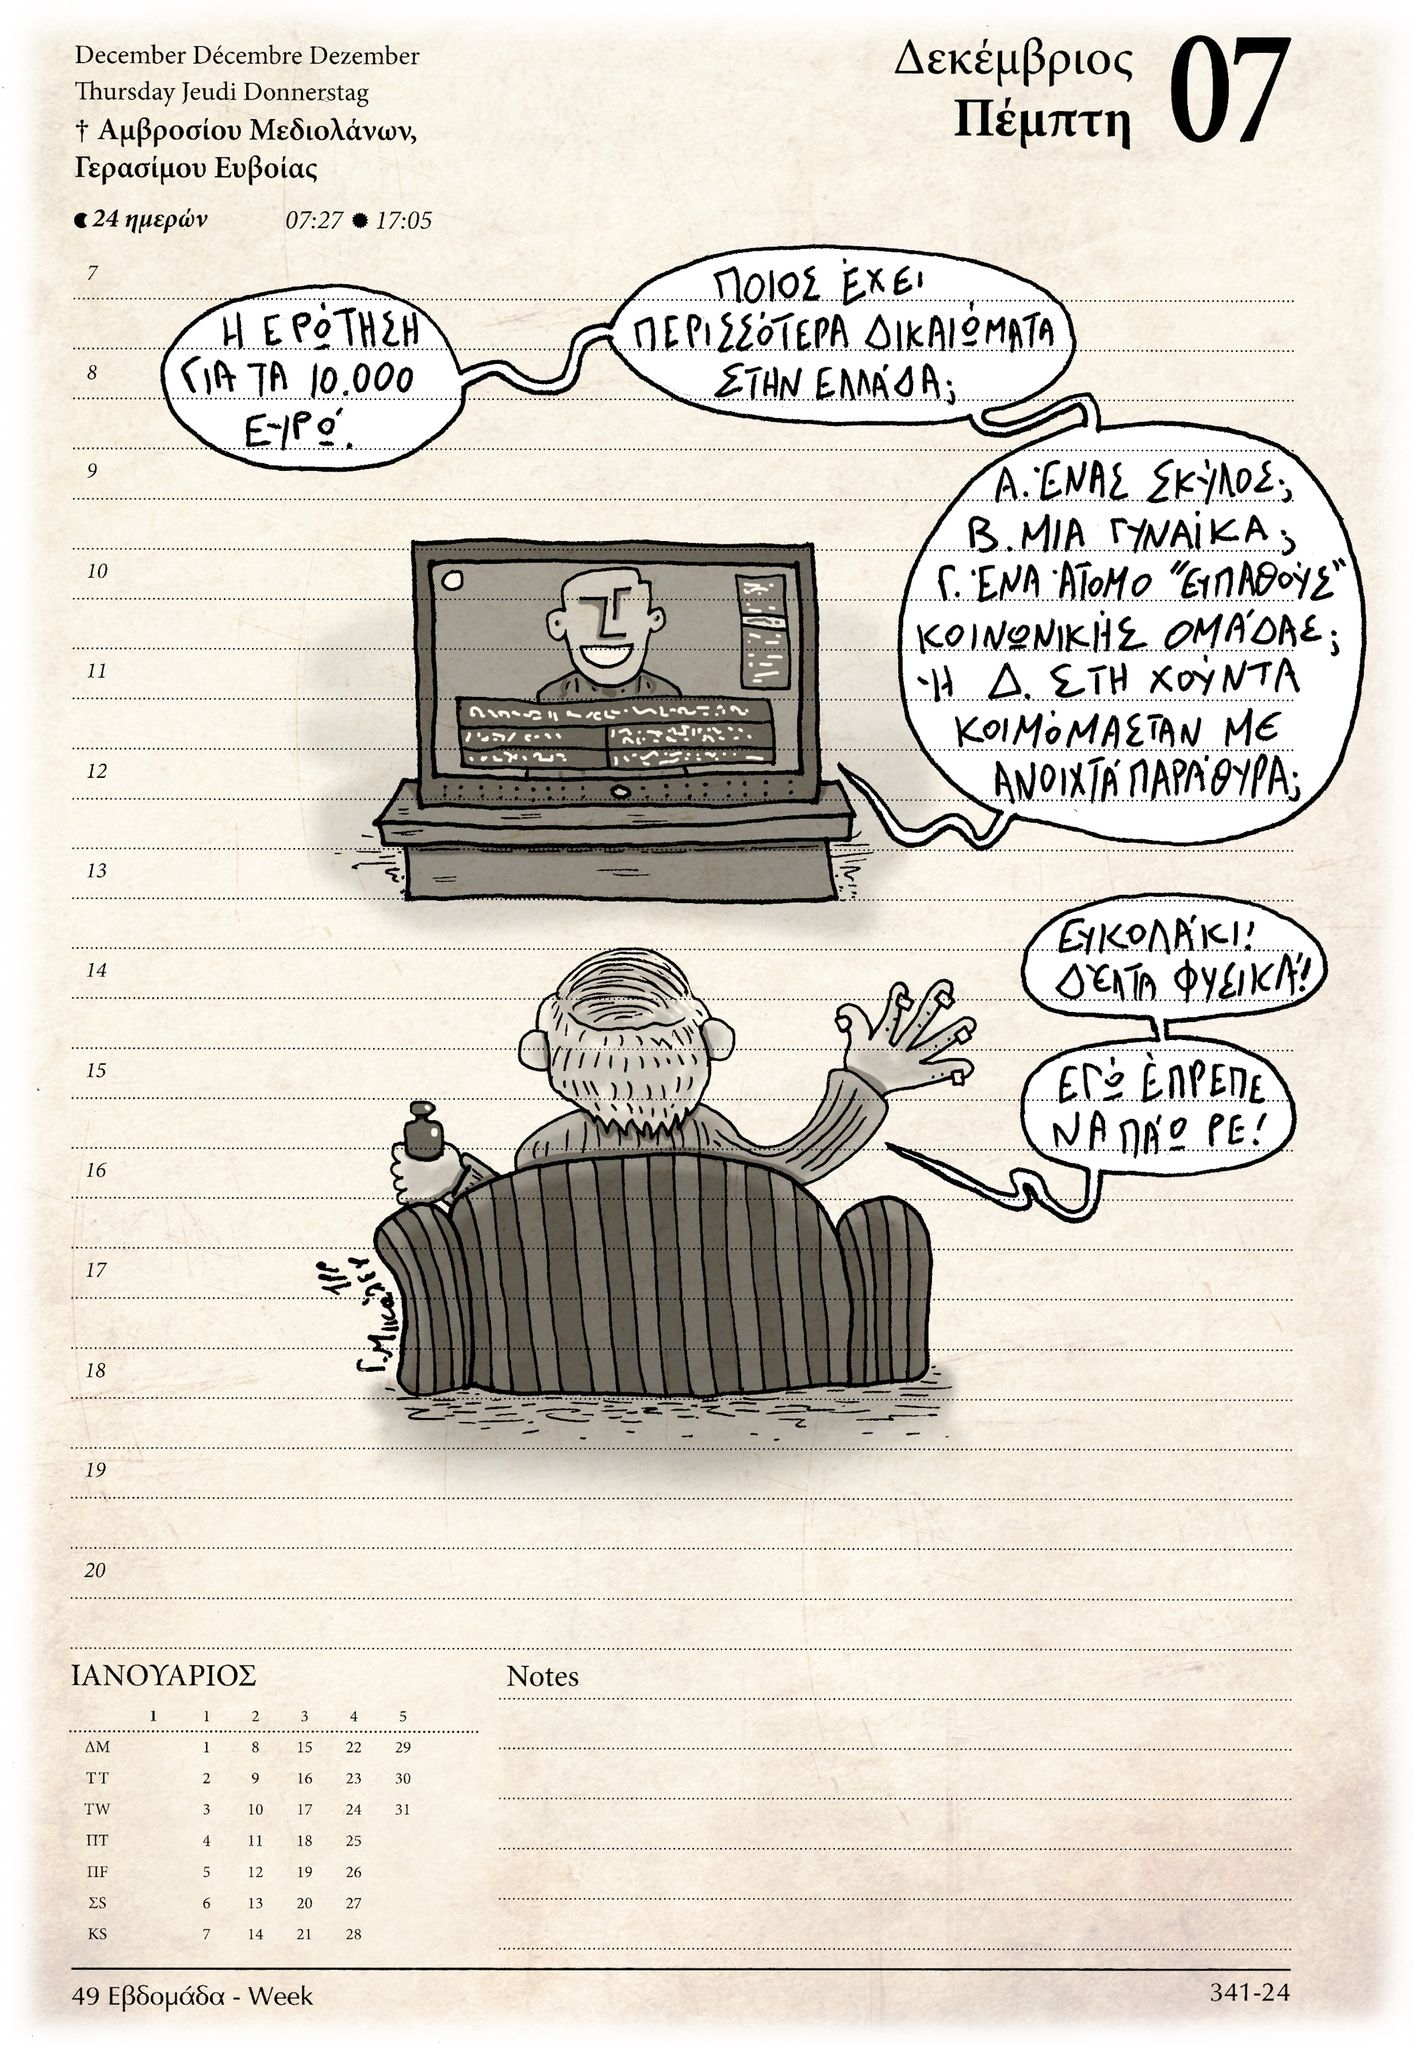 December Décembre Dezember
Thursday Jeudi Donnerstag
† Αμβροσίου Μεδιολάνων,
Γερασίμου Ευβοίας
24 ημερών 07:27 17:05
Δεκέμβριος
Πέμπτη
07
7
8
9
10
11
12
13
14
15
16
17
18
19
20
Η ΕΡΏΤΗΣΗ
ΓΙΑ ΤΑ 10.000
ΕΥΡΏ.
ΠΟΙΟΣ ΈΧΕΙ
ΠΕΡΙΣΣΌΤΕΡΑ ΔΙΚΑΙΏΜΑΤΑ
ΣΤΗΝ ΕΛΛΆΔΑ;
Α. ΈΝΑΣ ΣΚΎΛΟΣ;
Β. ΜΙΑ ΓΥΝΑΊΚΑ;
Γ. ΈΝΑ ΆΤΟΜΟ "ΕΥΠΑΘΟΎΣ"
ΚΟΙΝΩΝΙΚΉΣ ΟΜΆΔΑΣ;
Ή Δ. ΣΤΗ ΧΟΎΝΤΑ
ΚΟΙΜΌΜΑΣΤΑΝ ΜΕ
ΑΝΟΙΧΤΆ ΠΑΡΆΘΥΡΑ;
ΕΥΚΟΛΆΚΙ!
ΔΈΛΤΑ ΦΥΣΙΚΆ!
ΕΓΏ ΈΠΡΕΠΕ
ΝΑ ΠΆΩ ΡΕ!
ΙΑΝΟΥΑΡΙΟΣ
1 1 2 3 4 5
ΔΜ 1 8 15 22 29
ΤΤ 2 9 16 23 30
TW 3 10 17 24 31
ΠΤ 4 11 18 25
ΠF 5 12 19 26
ΣS 6 13 20 27
KS 7 14 21 28
Notes
49 Εβδομάδα - Week
341-24